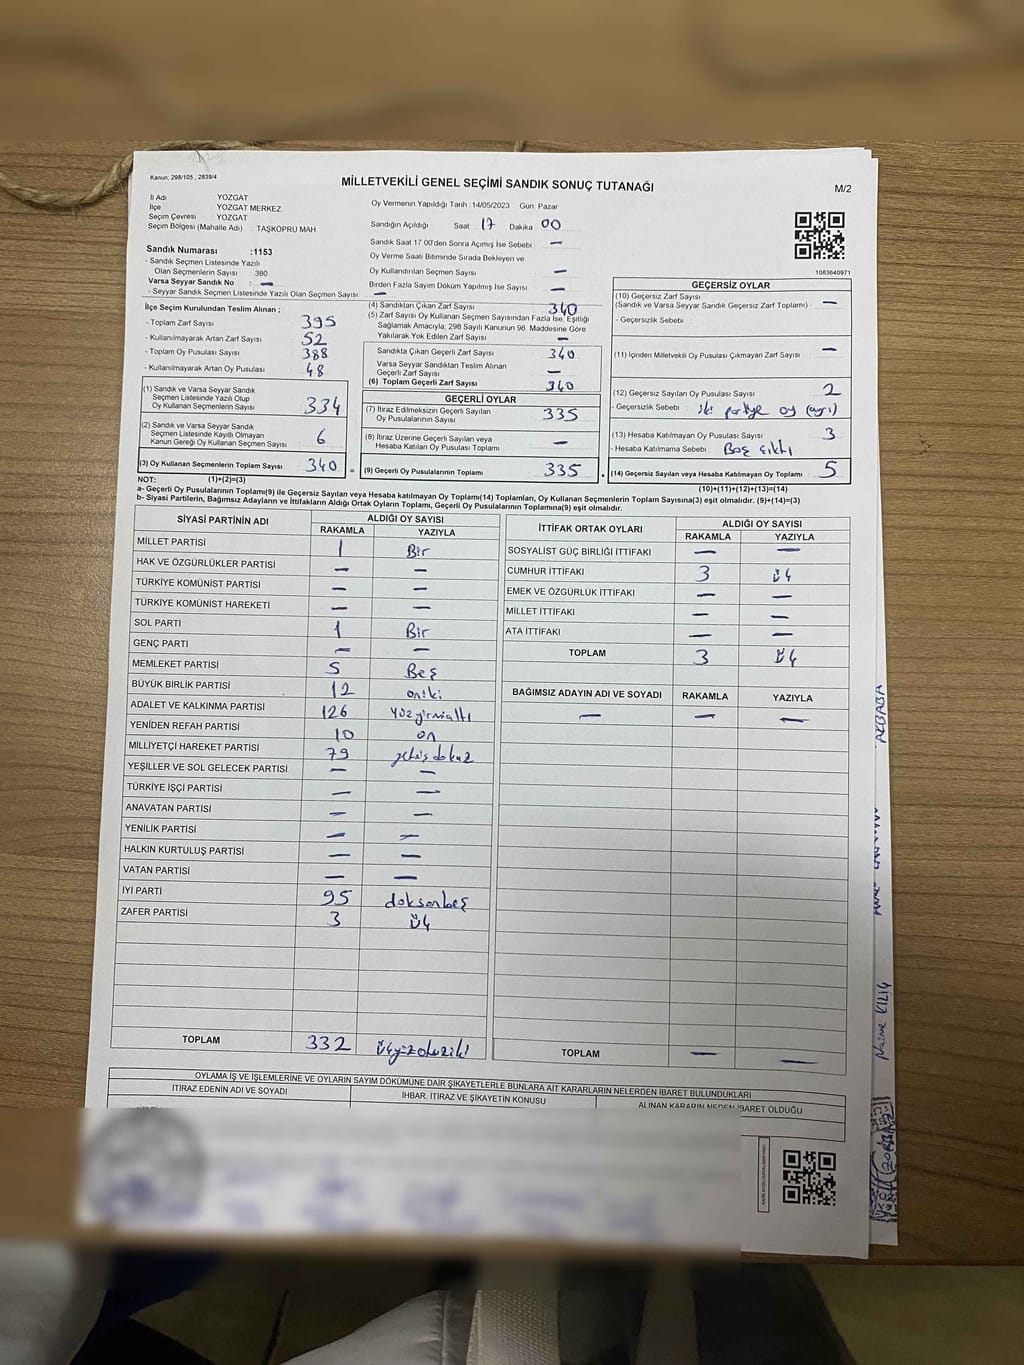 Kanun; 298/105 , 2839/4
MİLLETVEKİLİ GENEL SEÇİMİ SANDIK SONUÇ TUTANAĞI
M/2
İl Adı YOZGAT
İlçe YOZGAT MERKEZ
Seçim Çevresi YOZGAT
Seçim Bölgesi (Mahalle Adı) TAŞKÖPRU MAH
Oy Vermenin Yapıldığı Tarih :14/05/2023 Gün: Pazar
Sandığın Açıldığı Saat 17 Dakika 00
Sandık Saat 17 00'den Sonra Açımış İse Sebebi —
Oy Verme Saati Bitiminde Sırada Bekleyen ve
Oy Kullandırılan Seçmen Sayısı —
Birden Fazla Sayım Döküm Yapılmış İse Sayısı —
1083640971
Sandık Numarası :1153
- Sandık Seçmen Listesinde Yazılı
Olan Seçmenlerin Sayısı : 380
Varsa Seyyar Sandık No : —
- Seyyar Sandık Seçmen Listesinde Yazılı Olan Seçmen Sayısı: —
İlçe Seçim Kurulundan Teslim Alınan ;
- Toplam Zarf Sayısı 395
- Kullanılmayarak Artan Zarf Sayısı 52
- Toplam Oy Pusulası Sayısı 388
- Kullanılmayarak Artan Oy Pusulası 48
(1) Sandık ve Varsa Seyyar Sandık
Seçmen Listesinde Yazılı Olup
Oy Kullanan Seçmenlerin Sayısı 334
(2) Sandık ve Varsa Seyyar Sandık
Seçmen Listesinde Kayıtlı Olmayan
Kanun Gereği Oy Kullanan Seçmen Sayısı 6
(3) Oy Kullanan Seçmenlerin Toplam Sayısı 340 =
(4) Sandıktan Çıkan Zarf Sayısı 340
(5) Zarf Sayısı Oy Kullanan Seçmen Sayısından Fazla İse, Eşitliği
Sağlamak Amacıyla, 298 Sayılı Kanunun 98. Maddesine Göre
Yakılarak Yok Edilen Zarf Sayısı —
Sandıkta Çıkan Geçerli Zarf Sayısı 340
Varsa Seyyar Sandıktan Teslim Alınan
Geçerli Zarf Sayısı —
(6) Toplam Geçerli Zarf Sayısı 340
GEÇERLİ OYLAR
(7) İtiraz Edilmeksizin Geçerli Sayılan
Oy Pusulalarının Sayısı 335
(8) İtiraz Üzerine Geçerli Sayılan veya
Hesaba Katılan Oy Pusulası Toplamı —
(9) Geçerli Oy Pusulalarının Toplamı 335 +
GEÇERSİZ OYLAR
(10) Geçersiz Zarf Sayısı
(Sandık ve Varsa Seyyar Sandık Geçersiz Zarf Toplamı) —
- Geçersizlik Sebebi
(11) İçinden Milletvekili Oy Pusulası Çıkmayan Zarf Sayısı —
(12) Geçersiz Sayılan Oy Pusulası Sayısı 2
- Geçersizlik Sebebi : iki partiye oy (ayrı)
(13) Hesaba Katılmayan Oy Pusulası Sayısı 3
- Hesaba Katılmama Sebebi : Boş çıktı
(14) Geçersiz Sayılan veya Hesaba Katılmayan Oy Toplamı 5
NOT: (1)+(2)=(3)
(10)+(11)+(12)+(13)=(14)
a- Geçerli Oy Pusulalarının Toplamı(9) ile Geçersiz Sayılan veya Hesaba katılmayan Oy Toplamı(14) Toplamları, Oy Kullanan Seçmenlerin Toplam Sayısına(3) eşit olmalıdır. (9)+(14)=(3)
b- Siyasi Partilerin, Bağımsız Adayların ve İttifakların Aldığı Ortak Oyların Toplamı, Geçerli Oy Pusulalarının Toplamına(9) eşit olmalıdır.
SİYASİ PARTİNİN ADI ALDIĞI OY SAYISI
RAKAMLA YAZIYLA
MİLLET PARTİSİ 1 Bir
HAK VE ÖZGÜRLÜKLER PARTİSİ — —
TÜRKİYE KOMÜNİST PARTİSİ — —
TÜRKİYE KOMÜNİST HAREKETİ — —
SOL PARTİ 1 Bir
GENÇ PARTİ — —
MEMLEKET PARTİSİ 5 Beş
BÜYÜK BİRLİK PARTİSİ 12 oniki
ADALET VE KALKINMA PARTİSİ 126 Yüzyirmialtı
YENİDEN REFAH PARTİSİ 10 on
MİLLİYETÇİ HAREKET PARTİSİ 79 yetmişdokuz
YEŞİLLER VE SOL GELECEK PARTİSİ — —
TÜRKİYE İŞÇİ PARTİSİ — —
ANAVATAN PARTİSİ — —
YENİLİK PARTİSİ — —
HALKIN KURTULUŞ PARTİSİ — —
VATAN PARTİSİ — —
İYİ PARTİ 95 doksanbeş
ZAFER PARTİSİ 3 üç
TOPLAM 332 üçyüzotuziki
İTTİFAK ORTAK OYLARI ALDIĞI OY SAYISI
RAKAMLA YAZIYLA
SOSYALİST GÜÇ BİRLİĞİ İTTİFAKI — —
CUMHUR İTTİFAKI 3 üç
EMEK VE ÖZGÜRLÜK İTTİFAKI — —
MİLLET İTTİFAKI — —
ATA İTTİFAKI — —
TOPLAM 3 üç
BAĞIMSIZ ADAYIN ADI VE SOYADI RAKAMLA YAZIYLA
— — —
TOPLAM — —
OYLAMA İŞ VE İŞLEMLERİNE VE OYLARIN SAYIM DÖKÜMÜNE DAİR ŞİKAYETLERLE BUNLARA AİT KARARLARIN NELERDEN İBARET BULUNDUKLARI
İTİRAZ EDENİN ADI VE SOYADI İHBAR, İTİRAZ VE ŞİKAYETİN KONUSU ALINAN KARARIN NEDEN İBARET OLDUĞU
AKBABA
Naime KILIÇ